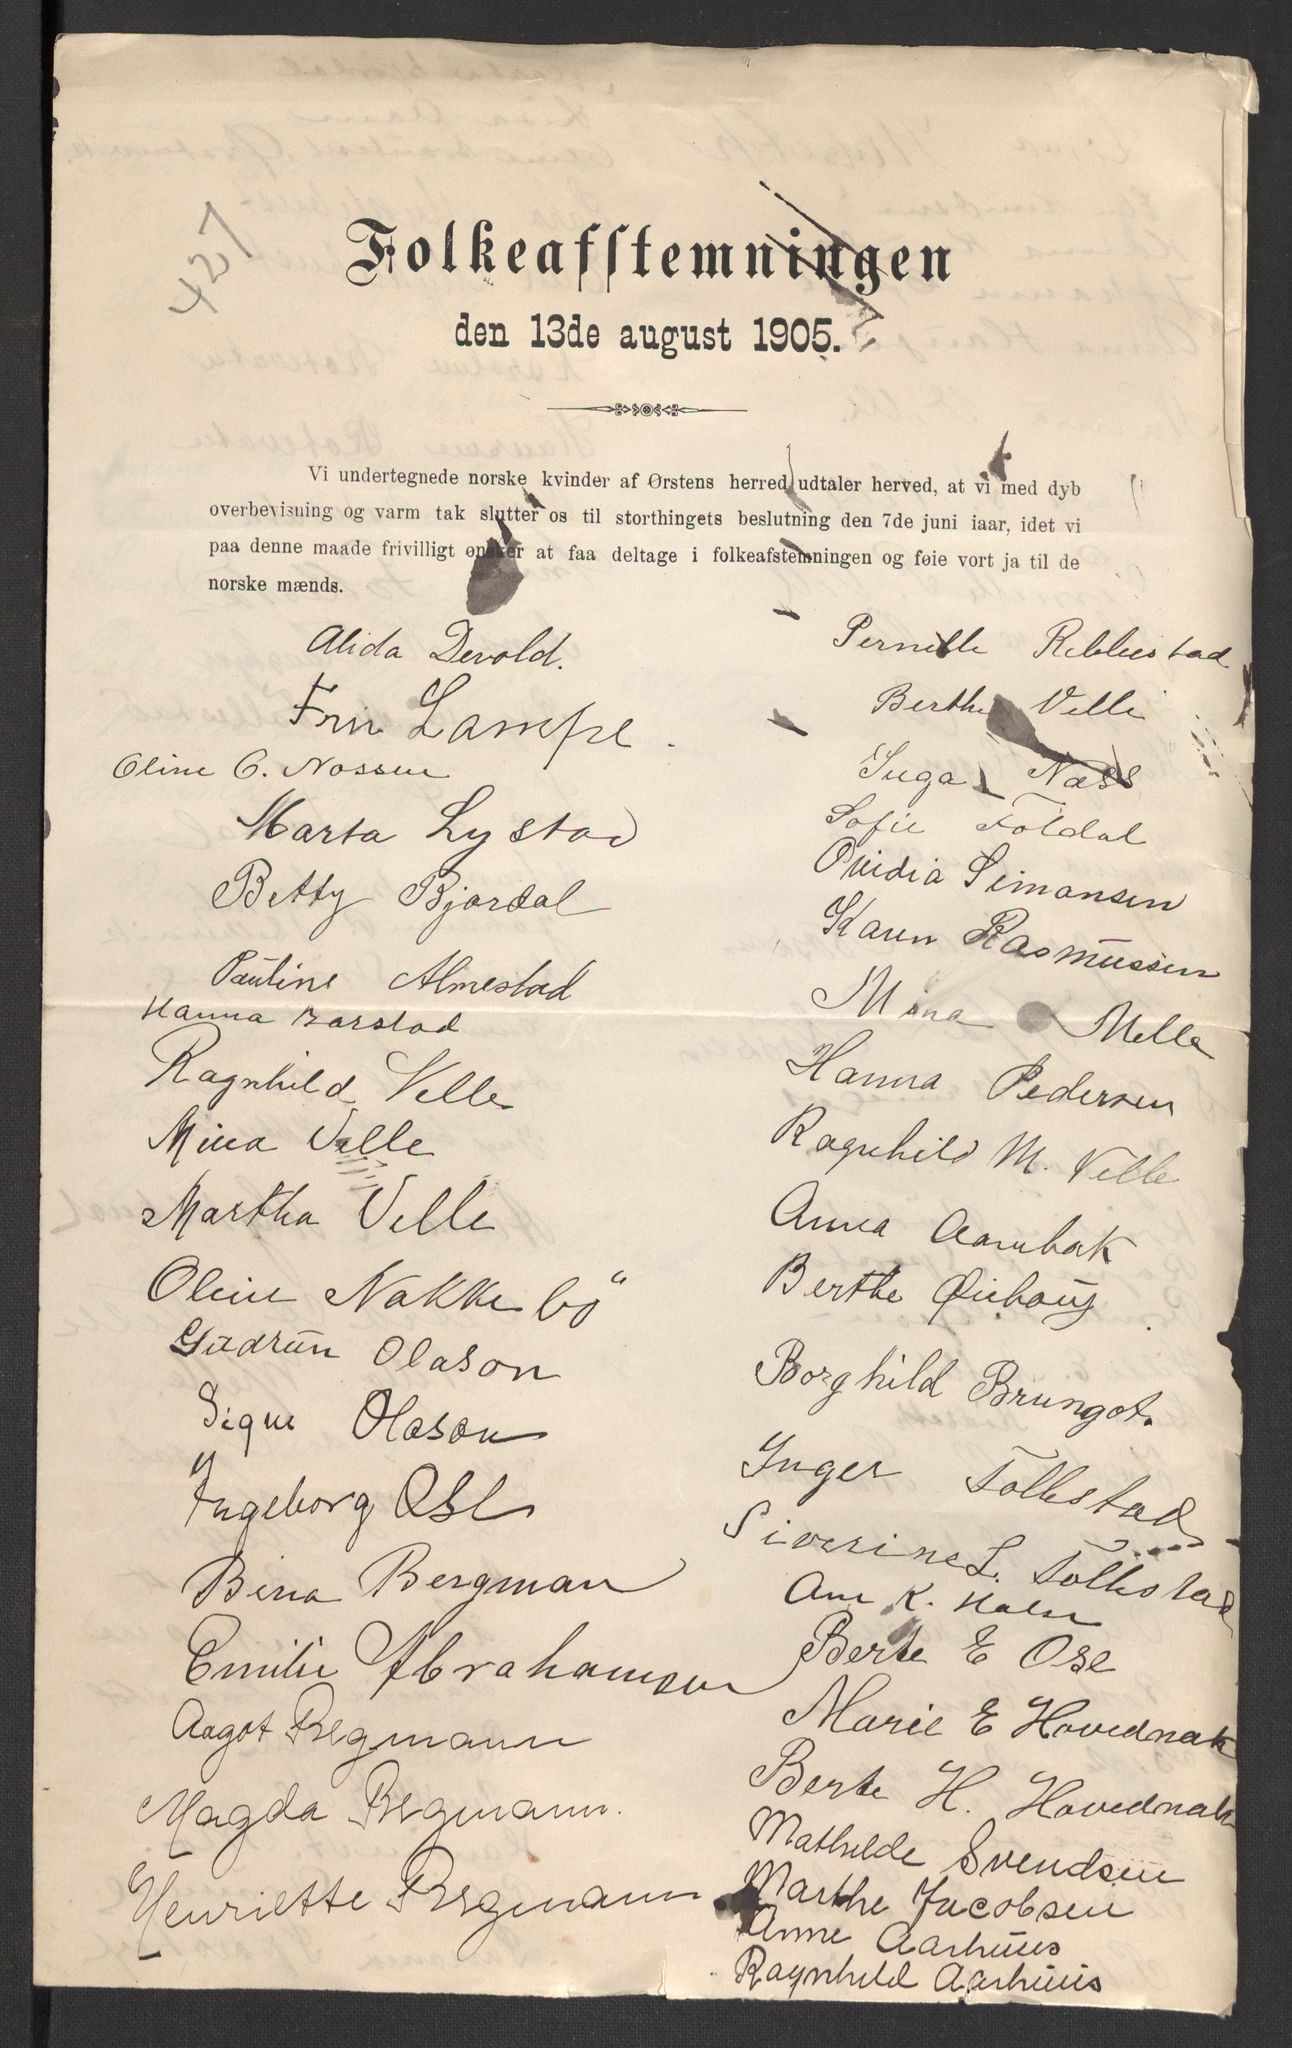 427
Folkeafstemningen
den 13de august 1905.
Vi undertegnede norske kvinder af Ørstens herred udtaler herved, at vi med dyb
overbevisning og varm tak slutter os til storthingets beslutning den 7de juni iaar, idet vi
paa denne maade frivilligt ønsker at faa deltage i folkeafstemningen og føie vort ja til de
norske mænds.
Alida Devold.
Fru Lampe.
Oline C. Nossen
Marta Lystad
Betty Bjørdal
Pauline Almestad
Hanna Barstad
Ragnhild Velle
Mina Velle
Martha Velle
Oline Nakkebö
Gudrun Olason
Signe Olason
Ingeborg Ose
Bina Bergman
Emilie Abrahamsen
Aagot Bergmann
Magda Bergmann.
Henriette Bergmann
Pernille Ribbestad
Berthe Velle
Inga Næss
Sofie Foldal
Ovidia Simonsen
Karen Rasmussen
Mina Melle
Hanna Pedersen
Ragnhild M. Velle
Anna Aambak
Berthe Øiehoug.
Borghild Brungot.
Inger Folkestad
Siverine L. Folkestad
Ane K. Holm
Berte E Ose
Marie E Hovednak
Berte H. Hovednak
Mathilde Svendsen
Marthe Jacobsen
Anne Aarhuus
Ragnhild Aarhuus